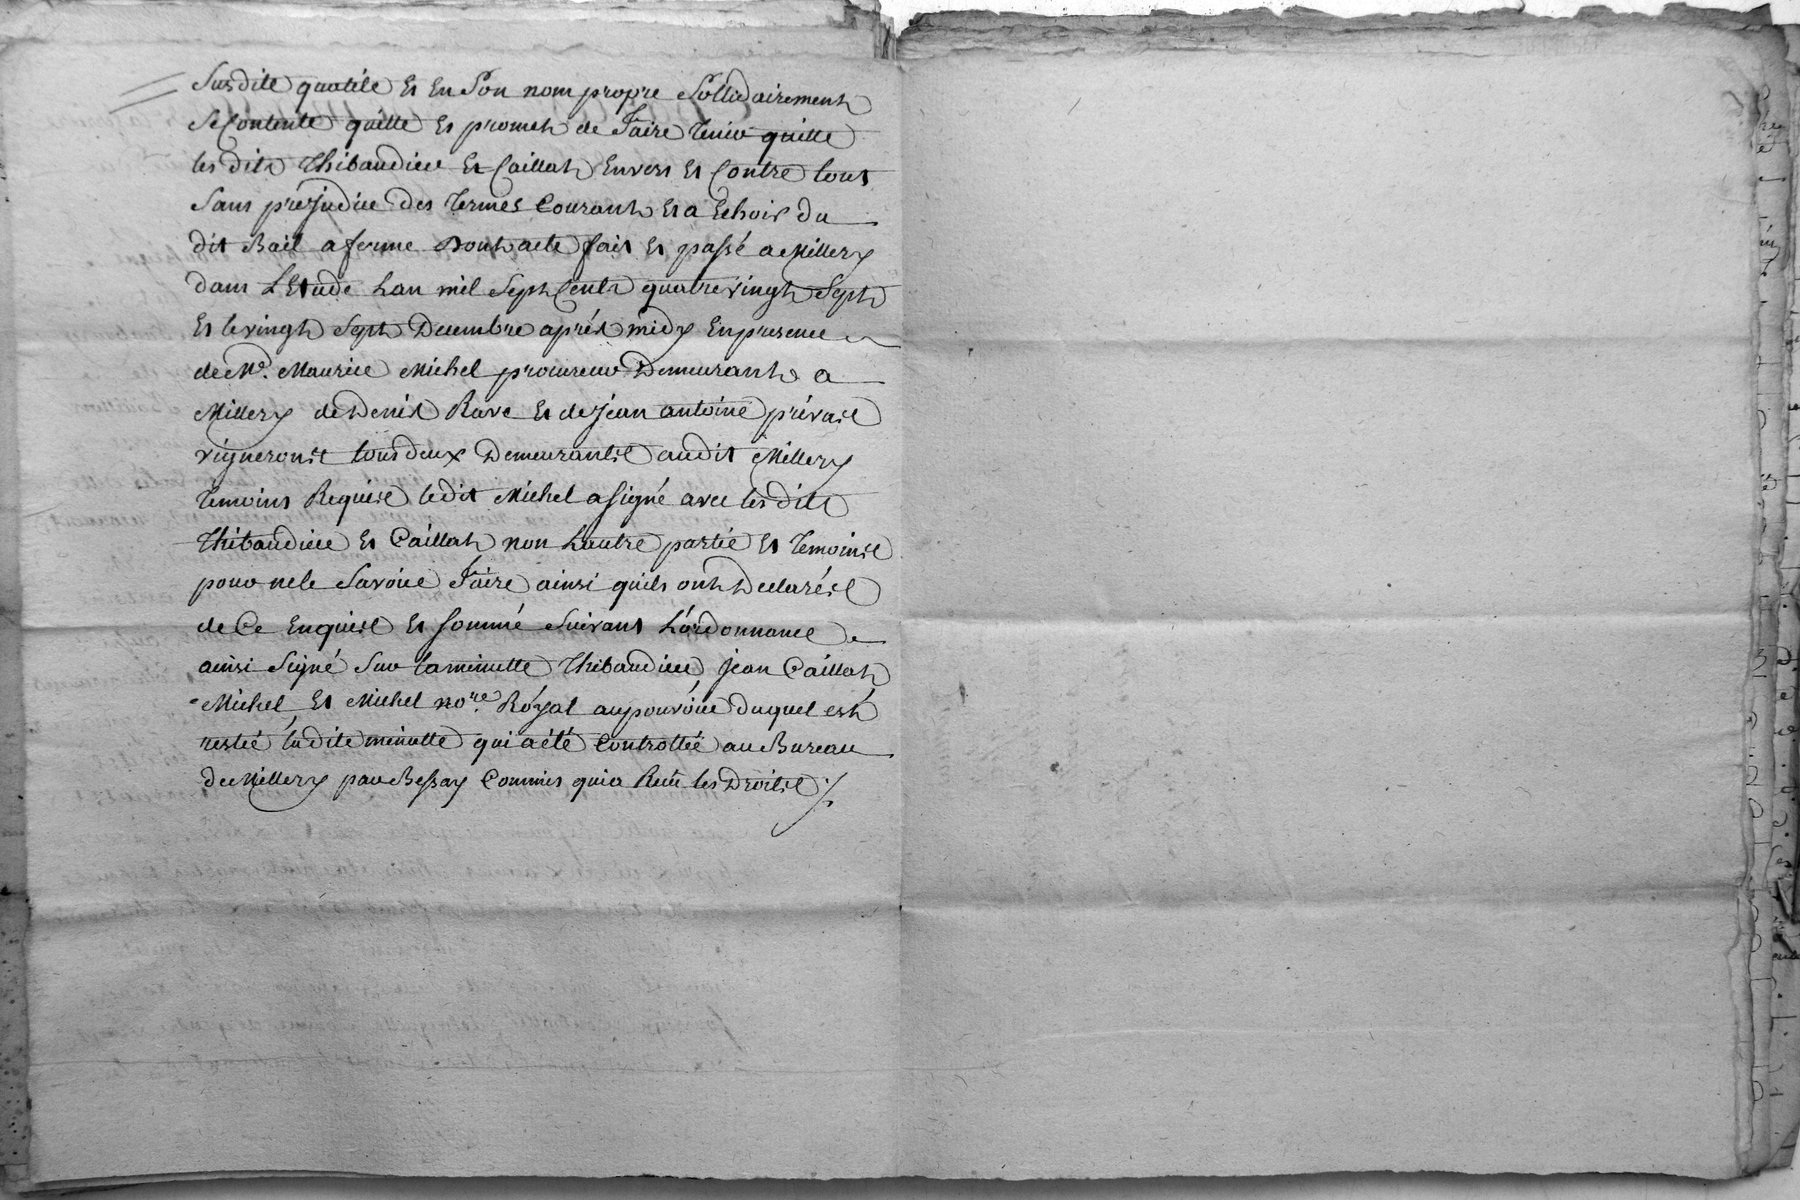 Susdite qualité et en Son nom propre Sollidairement
Se Contente quitte et promet de Faire tenir quitte
les dits Thibaudier et Caillat Envers et Contre tous
Sans préjudice des termes Courants et a Echoir du
dit Bail a ferme Dont acte fait et passé a Millery
dans L'Etude Lan mil Sept Cents quatre vingt Sept
et le vingt Sept Decembre aprés midy En presence
de Me. Maurice Michel procureur Demeurant a
Millery de Denis Rave et de jean antoine prévost
vignerons tous deux Demeurants audit Millery
temoins Requis ledit Michel a signé avec les dits
Thibaudier et Caillat non Lautre partie et temoins
pour ne le Savoir Faire ainsi quils ont Declarés
de Ce Enquis et sommé Suivant L'ordonnance
ainsi Signé Sur la minutte Thibaudier, jean Caillat,
Michel et Michel nore. Royal au pouvoir duquel est
resté ladite minutte qui a été Controllée au Bureau
de Millery par Bessay Commis qui a Reçu les Droits ./.